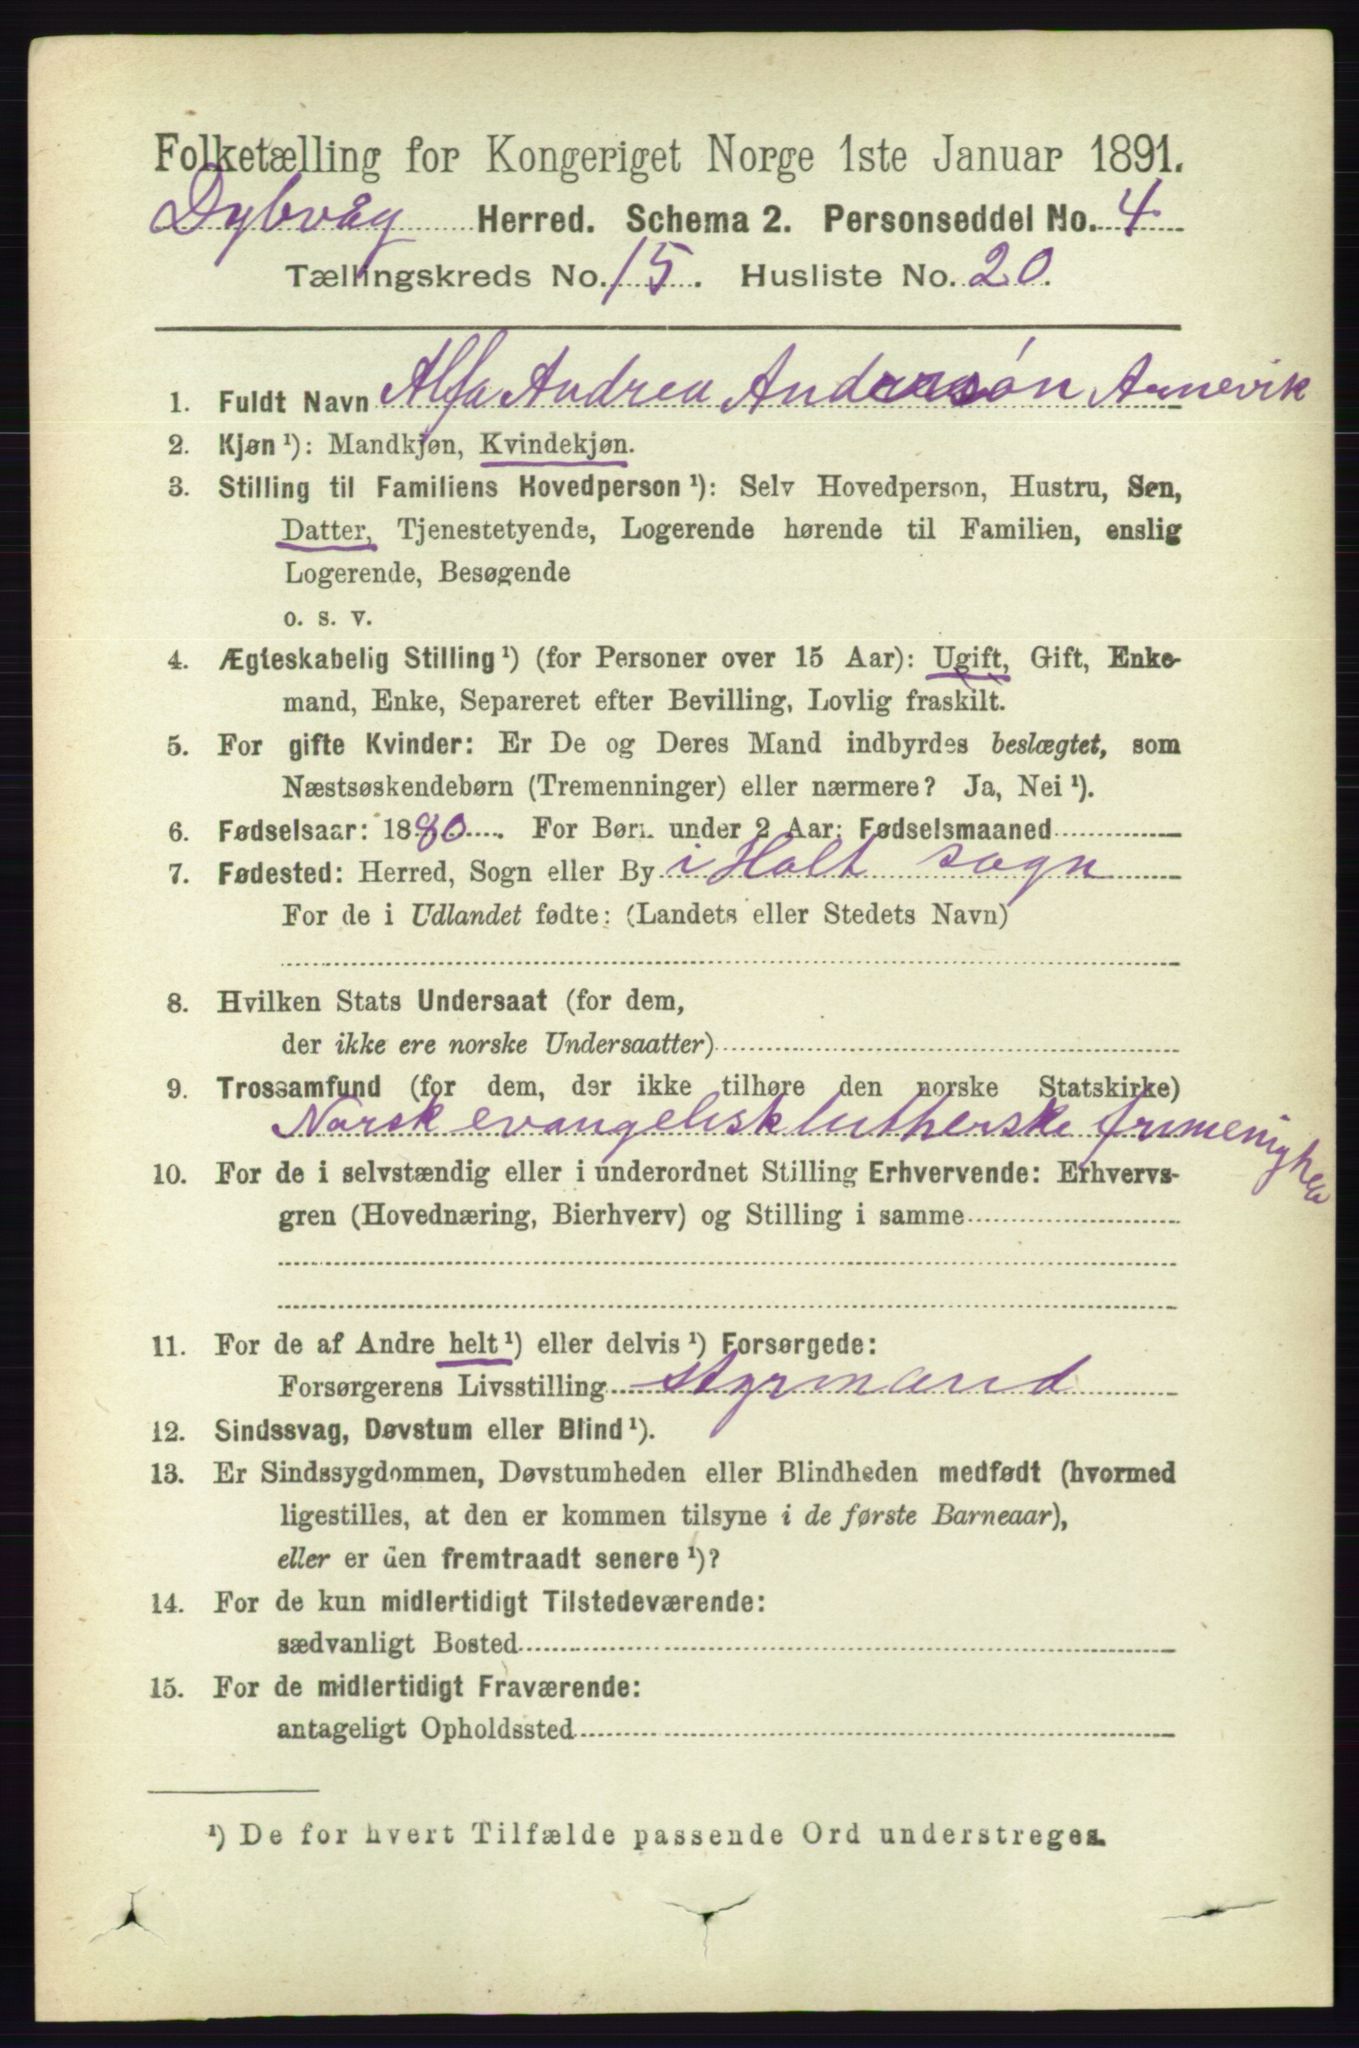 Folketælling for Kongeriget Norge 1ste Januar 1891.
Dybvåg Herred. Schema 2. Personseddel No. 4
Tællingskreds No. 15. Husliste No. 20.
1. Fuldt Navn Alfa Andrea Andersøn Arnevik
2. Kjøn ¹): Mandkjøn, Kvindekjøn.
3. Stilling til Familiens Hovedperson ¹): Selv Hovedperson, Hustru, Søn,
Datter, Tjenestetyende, Logerende hørende til Familien, enslig
Logerende, Besøgende
o. s. v.
4. Ægteskabelig Stilling ¹) (for Personer over 15 Aar): Ugift, Gift, Enke-
mand, Enke, Separeret efter Bevilling, Lovlig fraskilt.
5. For gifte Kvinder: Er De og Deres Mand indbyrdes beslægtet, som
Næstsøskendebørn (Tremenninger) eller nærmere? Ja, Nei ¹).
6. Fødselsaar: 1880. For Børn under 2 Aar: Fødselsmaaned
7. Fødested: Herred, Sogn eller By i Holt sogn
For de i Udlandet fødte: (Landets eller Stedets Navn)
8. Hvilken Stats Undersaat (for dem,
der ikke ere norske Undersaatter)
9. Trossamfund (for dem, der ikke tilhøre den norske Statskirke)
Norsk evangelisk lutherske frimenighed
10. For de i selvstændig eller i underordnet Stilling Erhvervende: Erhvervs-
gren (Hovednæring, Bierhverv) og Stilling i samme
11. For de af Andre helt ¹) eller delvis ¹) Forsørgede:
Forsørgerens Livsstilling styrmand
12. Sindssvag, Døvstum eller Blind ¹).
13. Er Sindssygdommen, Døvstumheden eller Blindheden medfødt (hvormed
ligestilles, at den er kommen tilsyne i de første Barneaar),
eller er den fremtraadt senere ¹)?
14. For de kun midlertidigt Tilstedeværende:
sædvanligt Bosted
15. For de midlertidigt Fraværende:
antageligt Opholdssted
¹) De for hvert Tilfælde passende Ord understreges.